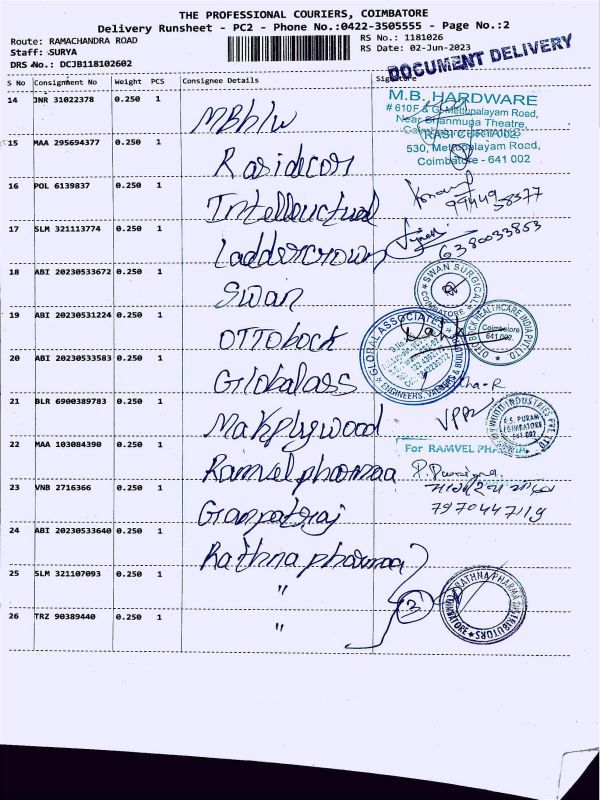 THE PROFESSIONAL COURIERS, COIMBATORE
Delivery Runsheet - PC2 - Phone No.:0422-3505555 - Page No.:2
Route: RAMACHANDRA ROAD
RS No.: 1181026
Staff: SURYA
RS Date: 02-Jun-2023
DRS No.: DCJB118102602
DOCUMENT DELIVERY
S No Consignment No Weight PCS Consignee Details Signature
14 JNR 31022378 0.250 1
M.B. HARDWARE
# 610F & G, Mettupalayam Road,
Near Shanmuga Theatre,
15 MAA 295694377 0.250 1 Rasidecor
RASI CURTAINZ
530, Mettupalayam Road,
Coimbatore - 641 002
16 POL 6139837 0.250 1 Intellectual
17 SLM 321113774 0.250 1 Laddercrown
6380033853
18 ABI 20230533672 0.250 1 Swan
SWAN SURGICAL
COIMBATORE
19 ABI 20230531224 0.250 1 OTTobock
OTTO BOCK HEALTHCARE INDIA PVT LTD
Coimbatore
641 002
20 ABI 20230533583 0.250 1 Globalass
GLOBAL ASSOCIATES
ENGINEERS, VALUERS & BUILD
21 BLR 6900389783 0.250 1 Makplywood
R.S. PURAM
COIMBATORE
641 002
22 MAA 103084390 0.250 1 Ramvel pharmaa
For RAMVEL PHARMA
23 VNB 2716366 0.250 1 Ganpatraj
7970447119
24 ABI 20230533640 0.250 1 Rathna pharmaa
25 SLM 321107093 0.250 1 "
3
RATHNA PHARMA DISTRIBUTORS
COIMBATORE
26 TRZ 90389440 0.250 1 "